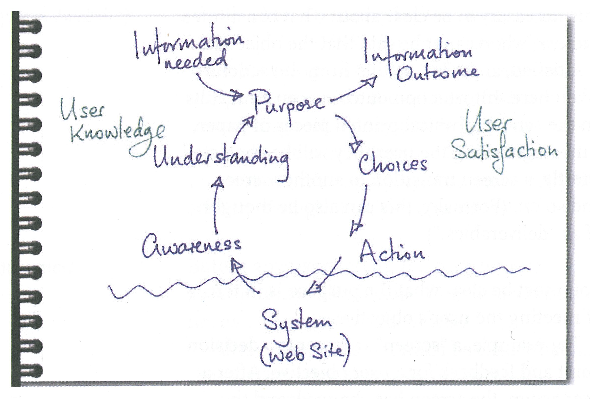 Information
needed
Information
Outcome
Purpose
User
Knowledge
User
Satisfaction
Understanding
Choices
Awareness
Action
System
(Web Site)